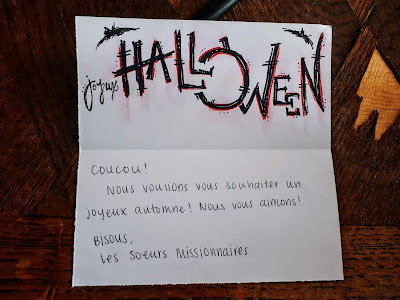 joyeux HALLOWEEN
COUCOU!
Nous voulions vous souhaiter un
joyeux automne! Nous vous aimons!
Bisous,
Les Soeurs Missionnaires